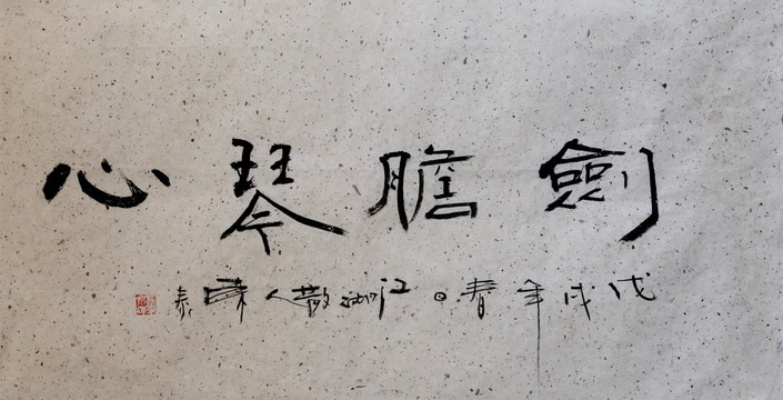 劍膽琴心
戊戌年春日江湖散人